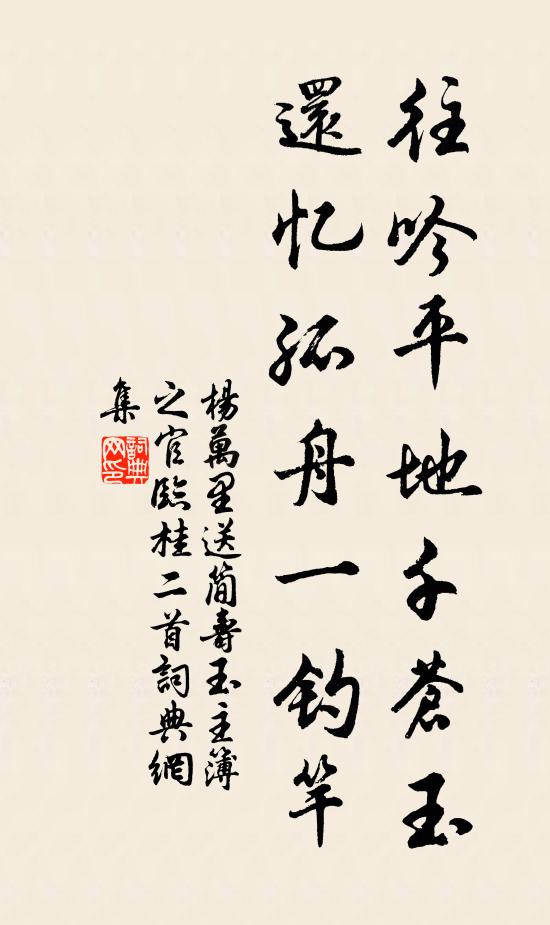 往吟平地千苍玉
還忆孤舟一钓竿
楊萬里送简壽玉主簿
之官臨桂二首詞典網
集
詞典网印